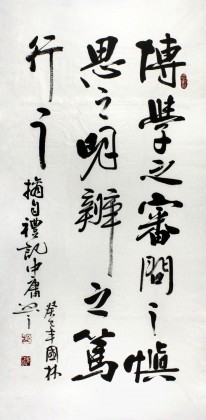 博學之審問之慎
思之明辨之篤
行之
摘自禮記中庸
癸未年國林